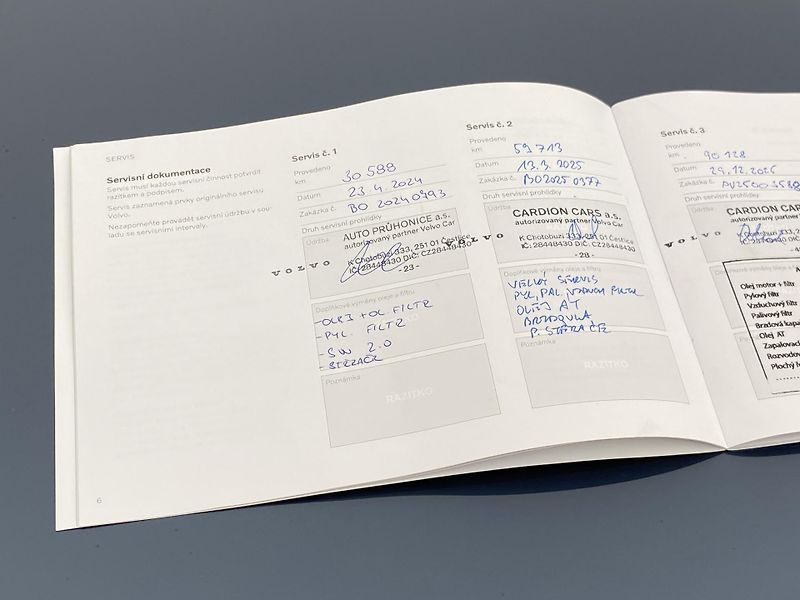 SERVIS
Servisní dokumentace
Servis musí každou servisní činnost potvrdit
razítkem a podpisem.
Servis zaznamená prvky originálního servisu
Volvo.
Nezapomeňte provádět servisní údržbu v sou-
ladu se servisními intervaly.
6
Servis č. 1
Provedeno
km 30 588
Datum 23 4. 2024
Zakázka č. BO 20240493
Druh servisní prohlídky
Údržba
AUTO PRŮHONICE a.s.
autorizovaný partner Volvo Car
K Chotobuzi 333, 251 01 Čestlice
IČ: 28448430 DIČ: CZ28448430
VOLVO
- 23 -
Doplňkové výměny oleje a filtru
-OLEJ +OL. FILTR
-PYL. FILTR
-SW 2.0
-STĚRAČE
Poznámka
RAZÍTKO
Servis č. 2
Provedeno
km 59 713
Datum 13.3. 2025
Zakázka č. BO2025 0377
Druh servisní prohlídky
Údržba
CARDION CARS a.s.
autorizovaný partner Volvo Car
K Chotobuzi 333, 251 01 Čestlice
IČ: 28448430 DIČ: CZ28448430
VOLVO
- 28 -
Doplňkové výměny oleje a filtru
VELKÝ SERVIS
PYL, PAL, VZDUCH FILTR
OLEJ AT
P. STĚRAČE
Poznámka
RAZÍTKO
Servis č. 3
Provedeno
km 90 128
Datum 29.12.2025
Zakázka č.
Druh servisní prohlídky
Údržba
CARDION CAR
autorizovaný partner
333, 25
IČ: 28448430
VOLVO
Doplňkové výměny oleje a filtru
Olej motor + filtr
Pylový filtr
Vzduchový filtr
Palivový filtr
Brzdová kapa
Olej AT
Zapalovac
Rozvodov
Plochý ř